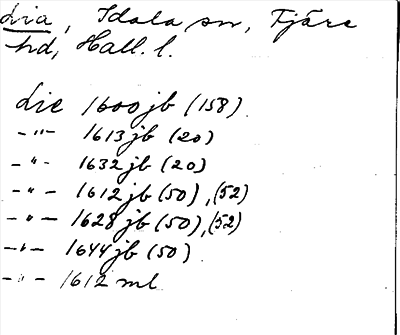 Lia, Idala sn, Fjäre
hd, Hall. l.
Lie 1600 jb (158)
-"- 1613 jb (20)
-"- 1632 jb (20)
-"- 1612 jb (50), (52)
-"- 1628 jb (50), (52)
-"- 1644 jb (50)
-"- 1612 ml